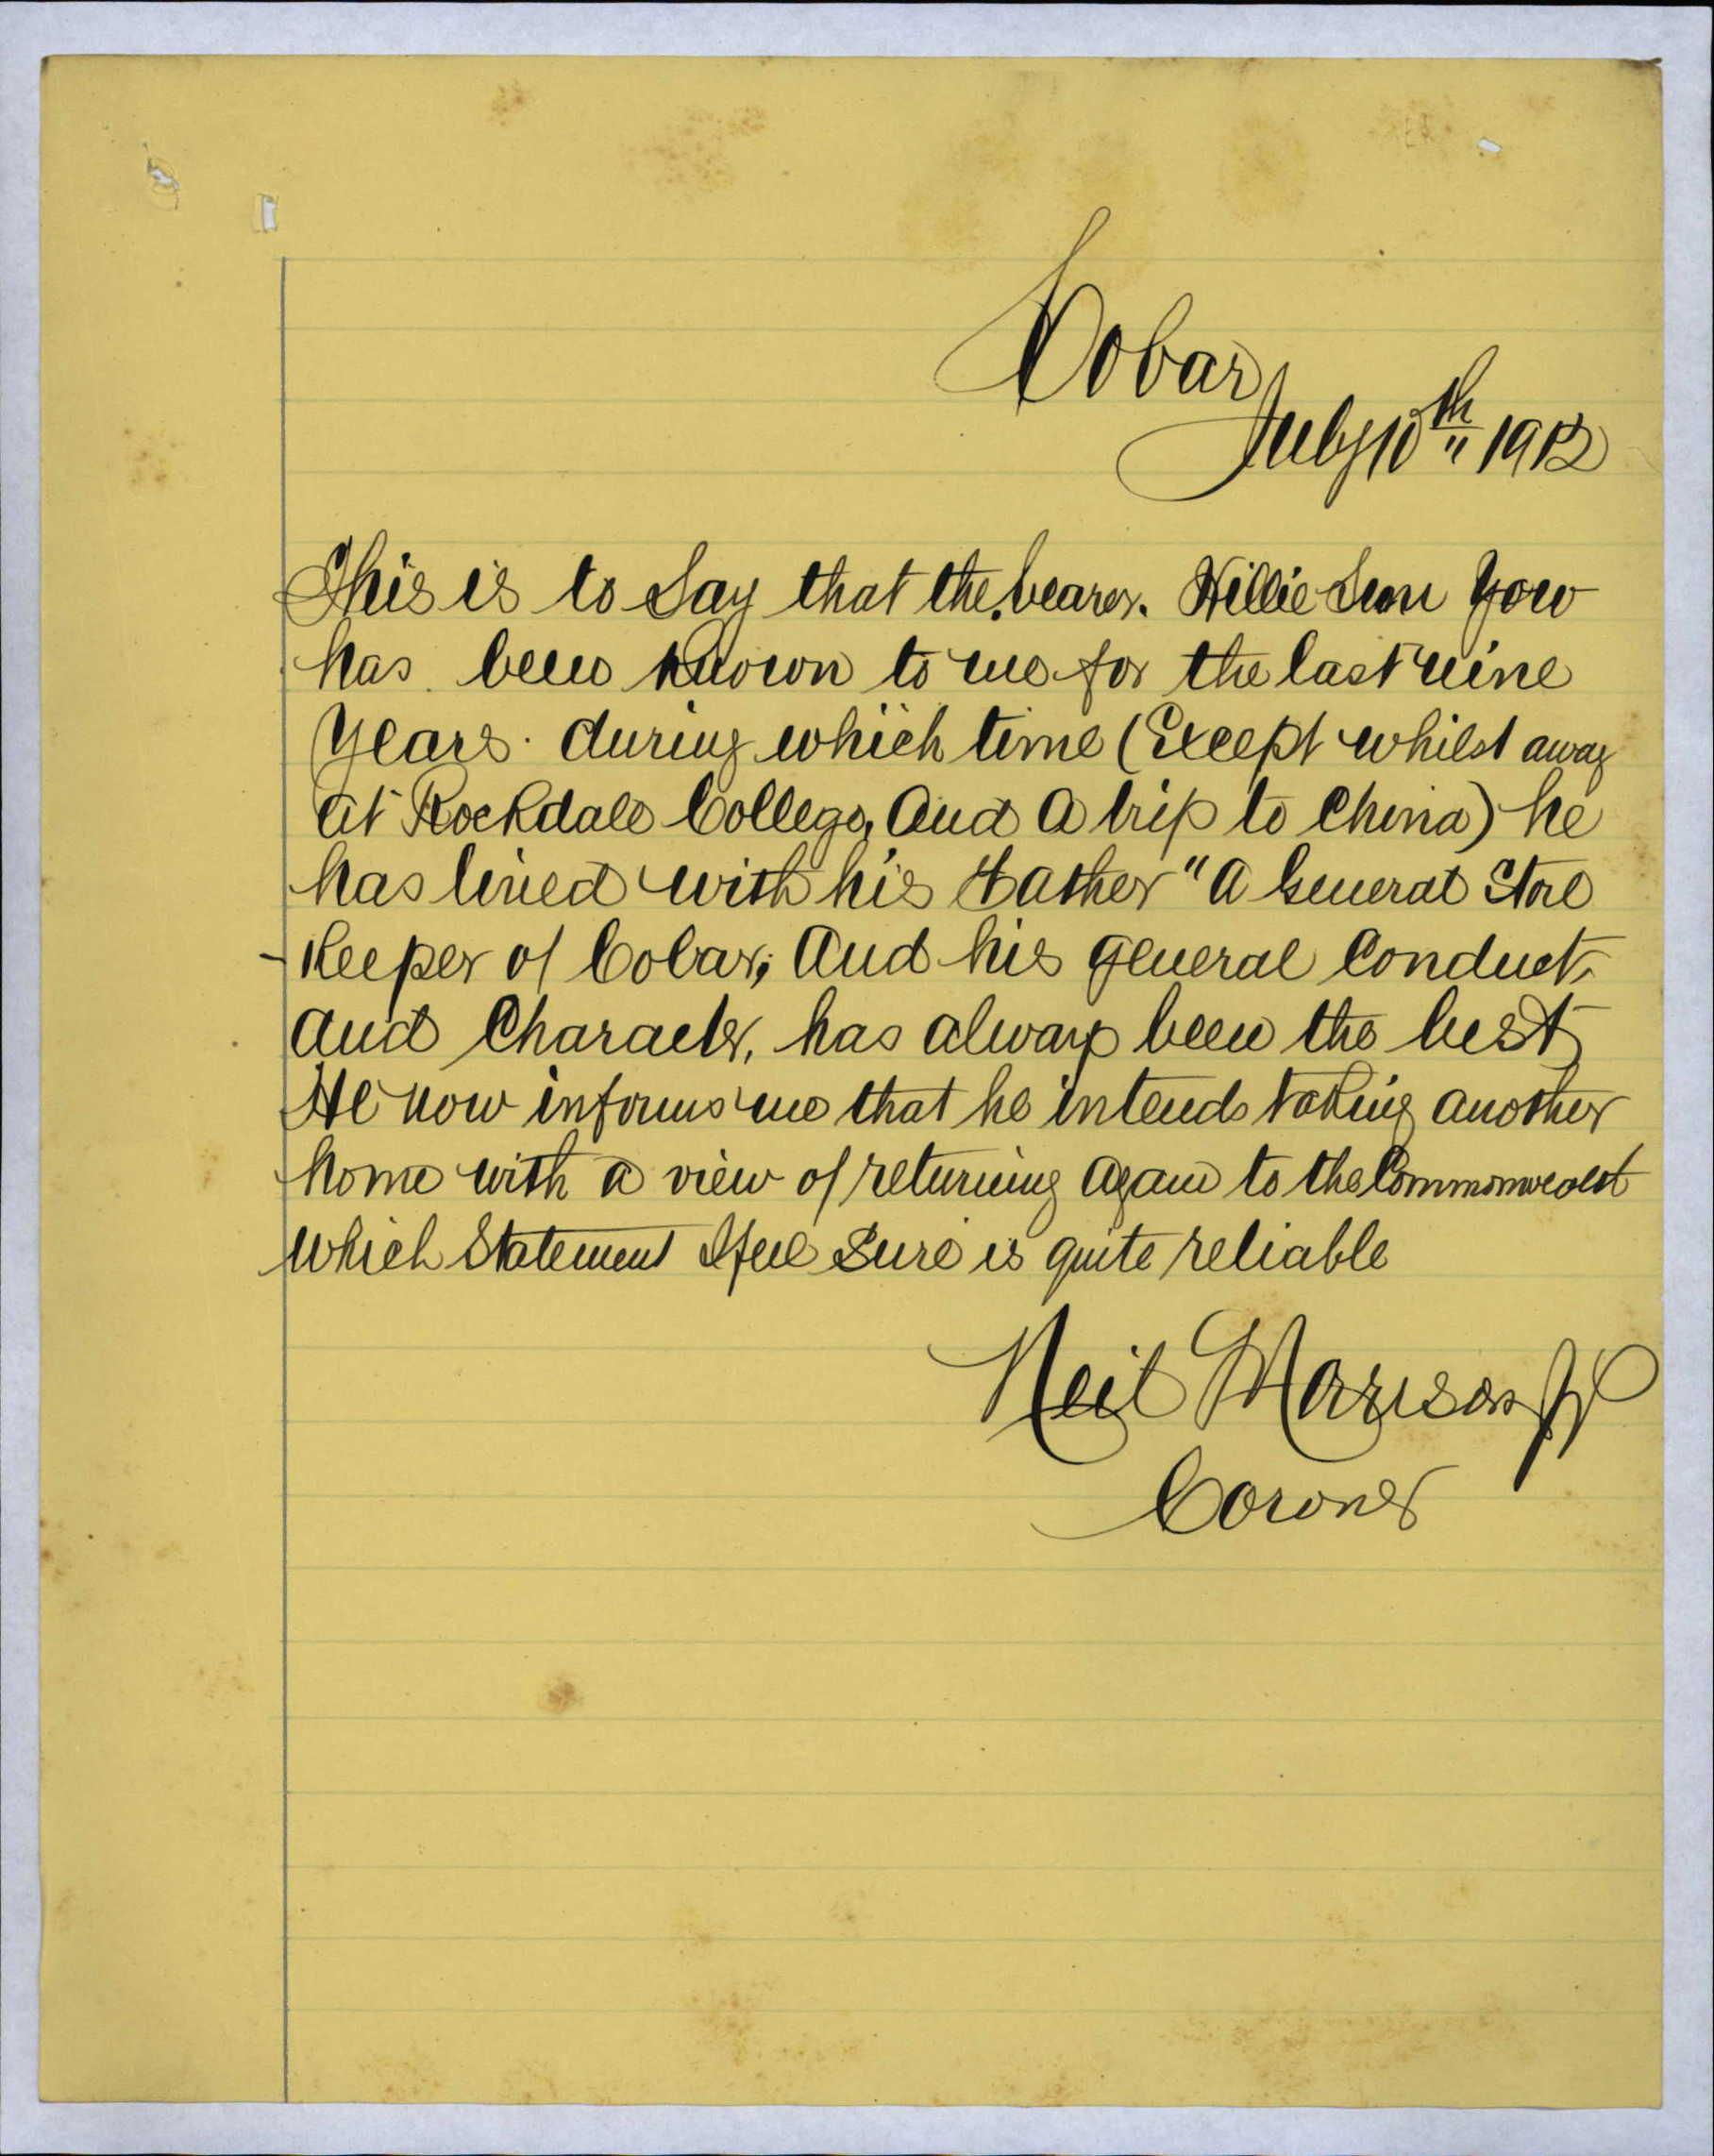 Cobar
July 10th 1912
This is to Say that the bearer. Willie Sun Yow
has been Known to me for the last nine
Years. during which time (Except whilst away
at Rockdale College, And A trip to China) he
has lived with his Father "A General Store
-Keeper of Cobar; And his general Conduct,
And Character, has always been the best
He now informs me that he intends taking another
home with a view of returning Again to the Commonwealt
Which Statement I feel Sure is quite reliable
Neil Morrison JP
Coroner